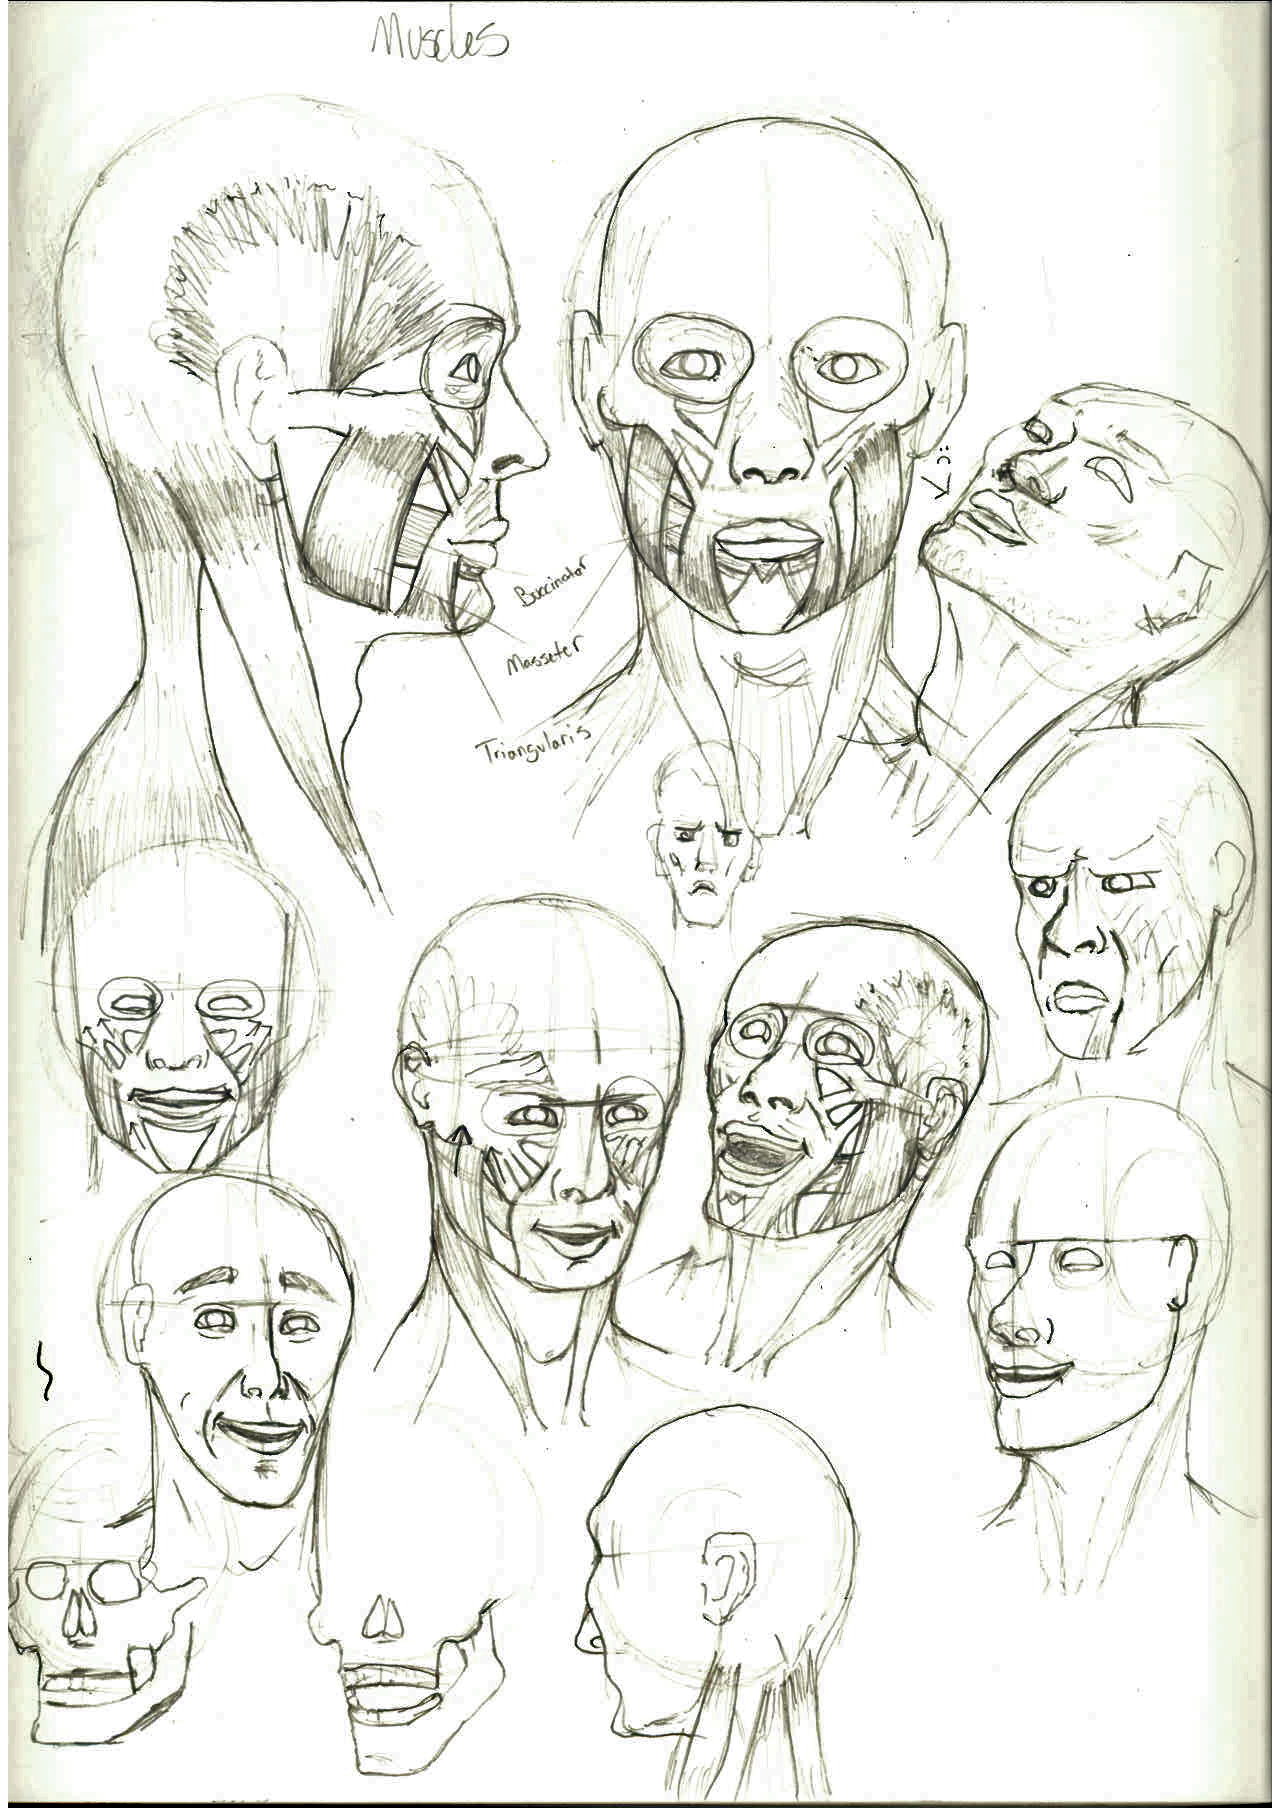 Muscles
Buccinator
Masseter
Triangularis